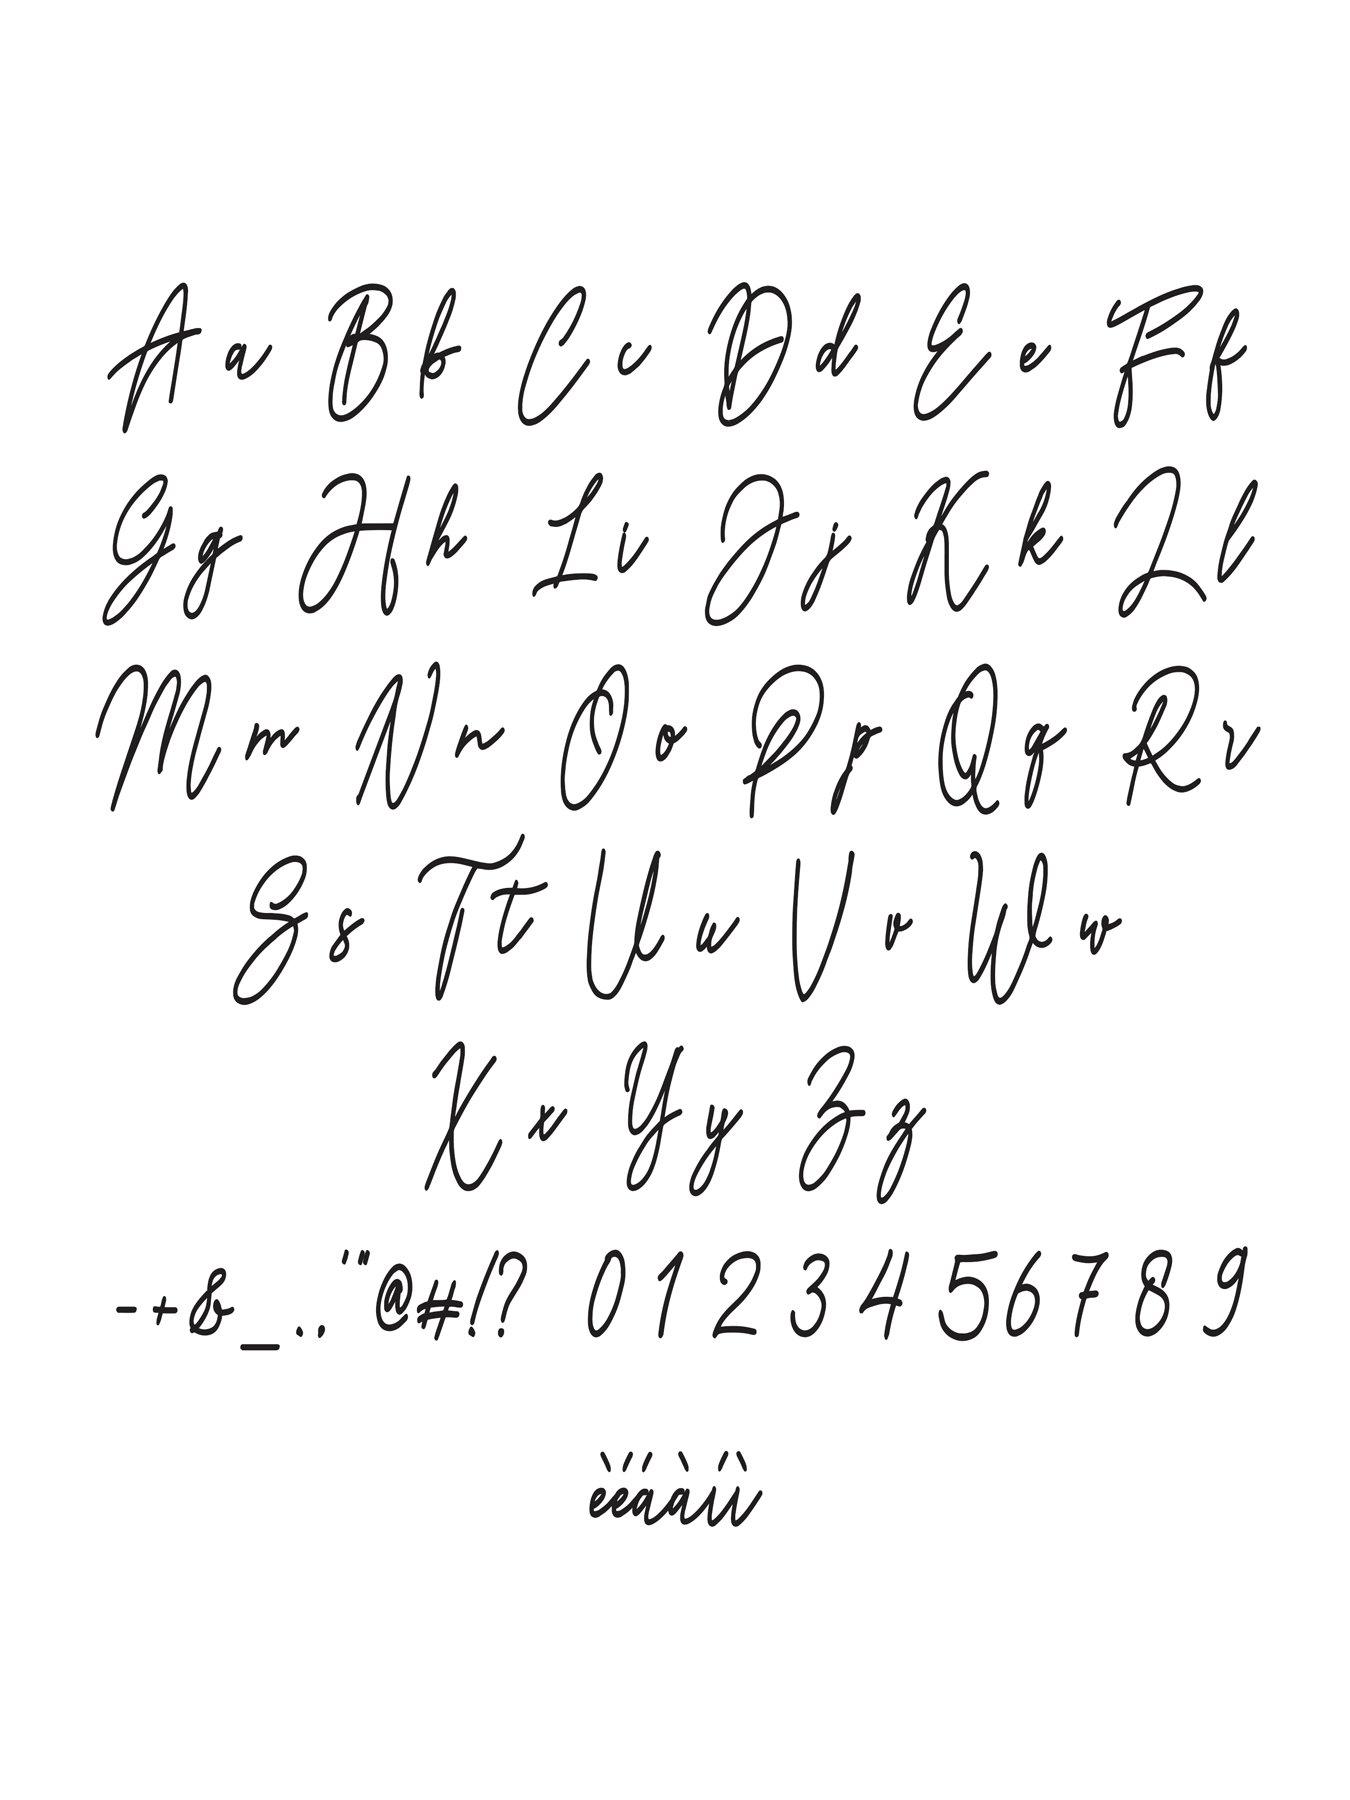 A a B b C c D d E e F f
G g H h I i J j K k L l
M m N n O o P p Q q R r
S s T t U u V v W w
X x Y y Z z
- + & _ . , ' " @ # ! / ? 0 1 2 3 4 5 6 7 8 9
èéáàíì